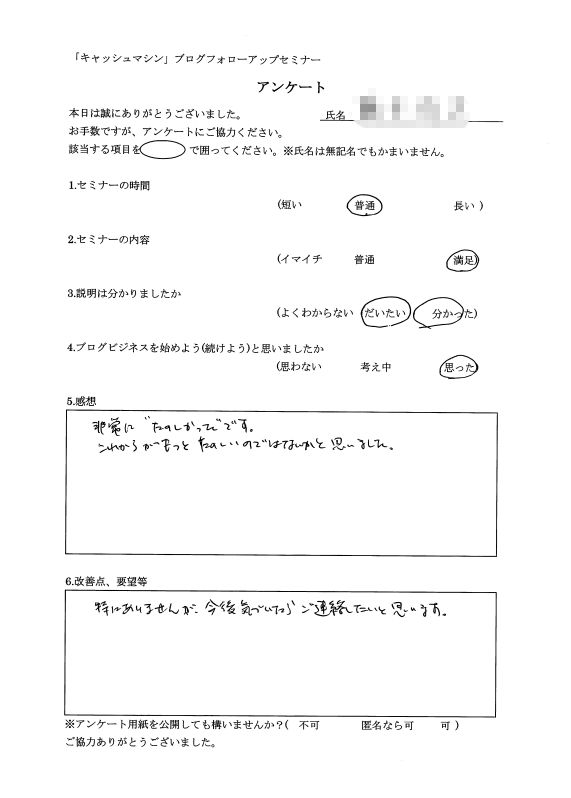 「キャッシュマシン」ブログフォローアップセミナー
アンケート
本日は誠にありがとうございました。 氏名
お手数ですが、アンケートにご協力ください。
該当する項目を で囲ってください。※氏名は無記名でもかまいません。
1.セミナーの時間
(短い 普通 長い )
2.セミナーの内容
(イマイチ 普通 満足)
3.説明は分かりましたか
(よくわからない だいたい 分かった)
4.ブログビジネスを始めよう(続けよう)と思いましたか
(思わない 考え中 思った)
5.感想
非常に"たのしかった"です。
これからがもっとたのしいのではないかと思いました。
6.改善点、要望等
特にありませんが、今後気づいたらご連絡したいと思います。
※アンケート用紙を公開しても構いませんか？( 不可 匿名なら可 可 )
ご協力ありがとうございました。